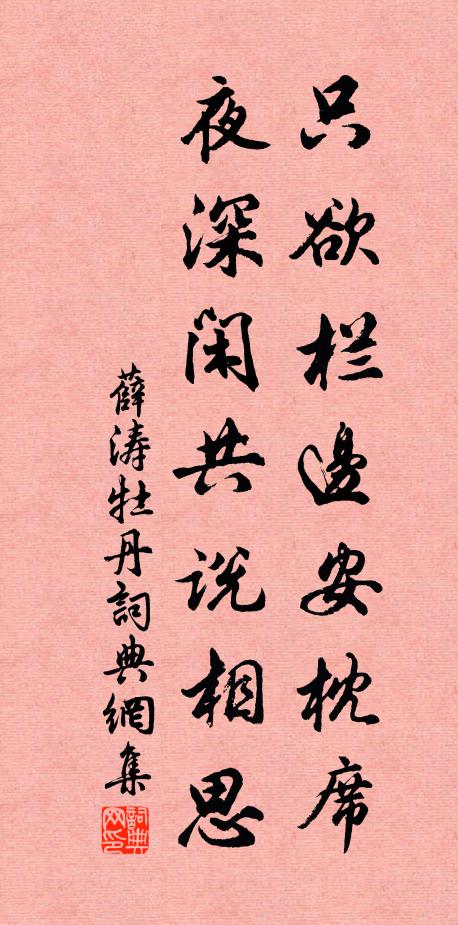 只欲栏邊安枕席
夜深闲共说相思
薛涛牡丹詞典網集
詞典網印